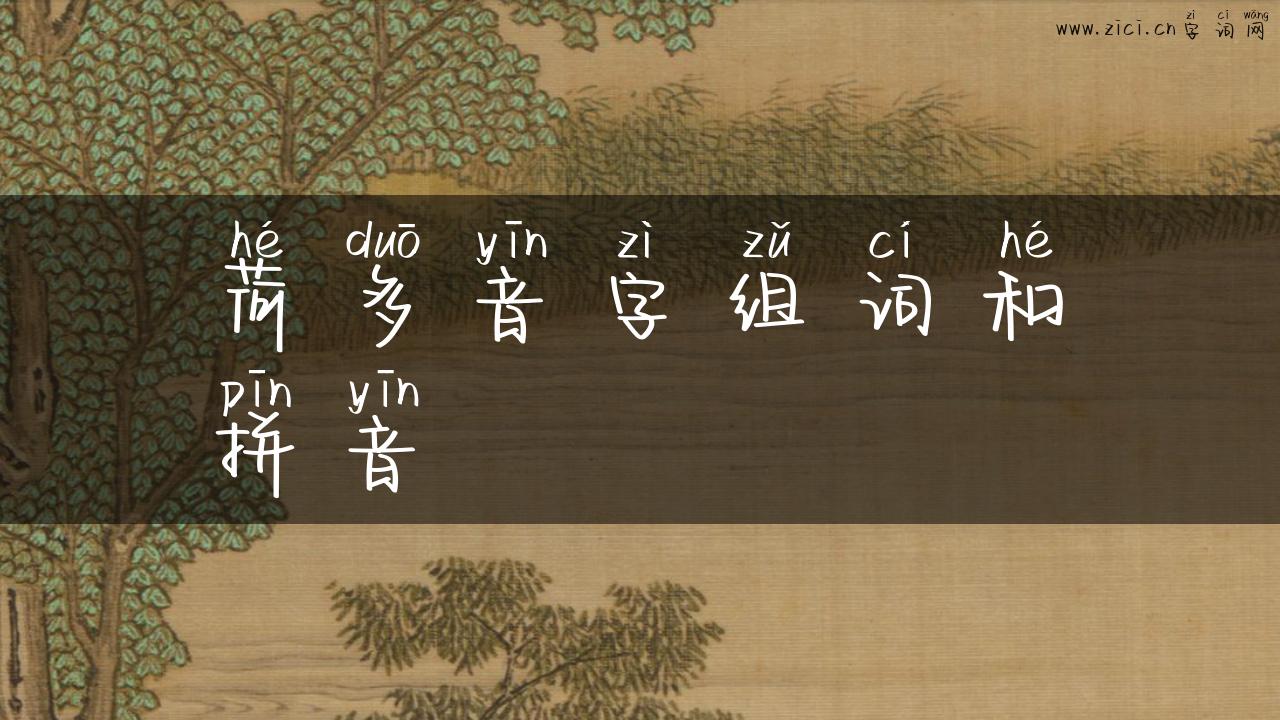 zì cí wǎng
www.zici.cn字词网
hé duō yīn zì zǔ cí hé
荷多音字组词和
pīn yīn
拼音